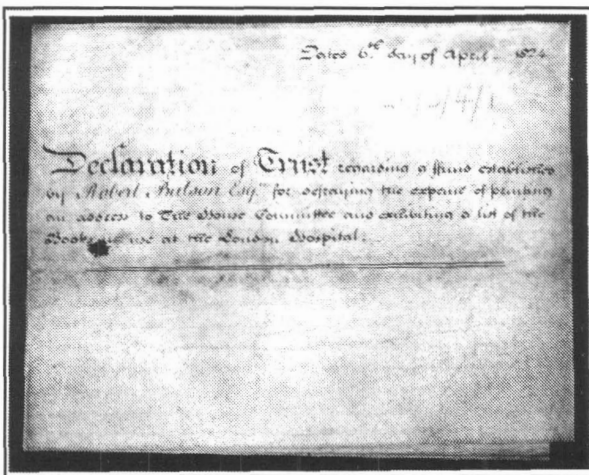 Dated 6th day of April 1824
Declaration of Trust regarding a Fund established
by Robert Batson Esqre for defraying the expense of printing
an address to The House Committee and exhibiting a list of the
Books in use at the London Hospital.